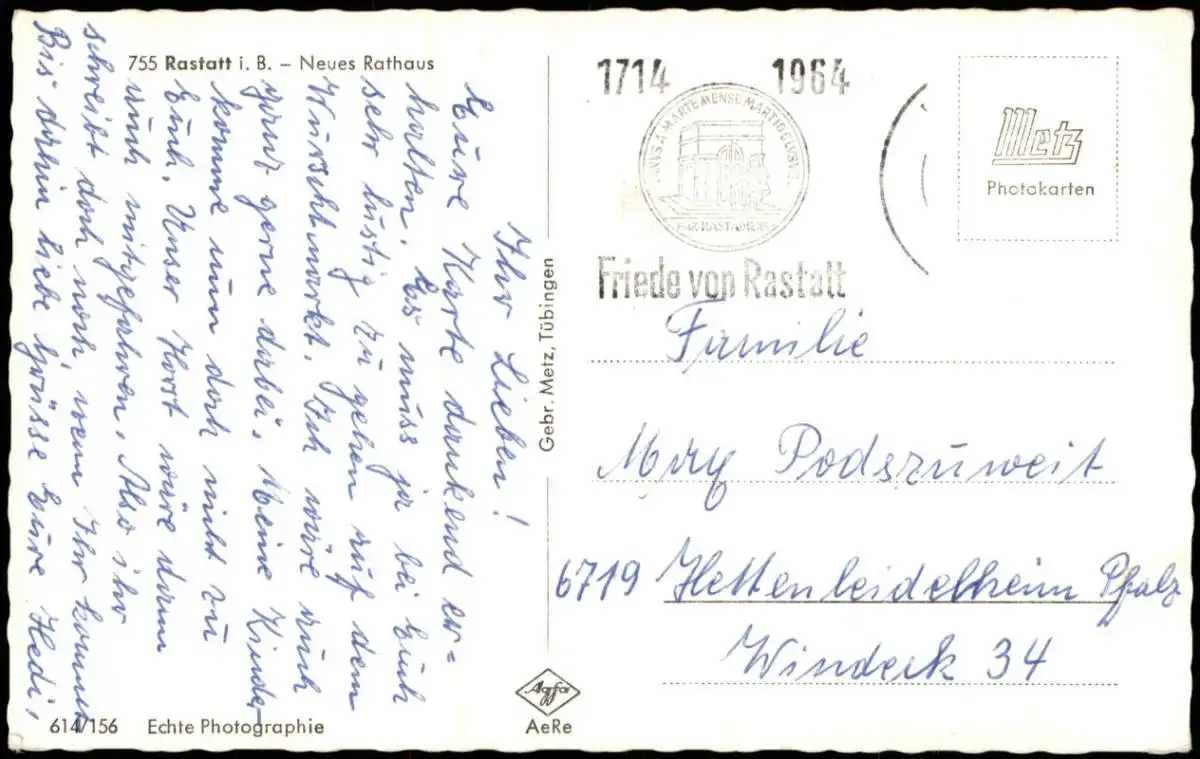 755 Rastatt i. B. – Neues Rathaus
Ihr Lieben!
Eure Karte dankend er-
halten. Es muss ja bei Euch
sehr lustig zu gehen auf dem
Wurschtmarkt. Ich wäre auch
ganz gerne dabei. Meine Kinder
komme nun doch nicht zu
Euch. Unser Horst wäre dann
auch mitgefahren. Also ihr
schreibt doch noch, wenn Ihr kommt
Bis dahin liebe Grüsse Eure Hedi,
614/156 Echte Photographie
Gebr. Metz, Tübingen
Agfa
AeRe
1714 1964
MARTE MENSE MARTIO CLUSIT
PAX RASTADIENSIS
Friede von Rastatt
Metz
Photokarten
Familie
Max Podszuweit
6719 Hettenleidelheim Pfalz
Windeck 34